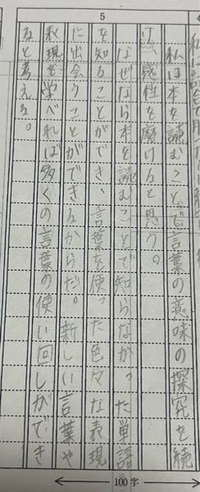 5
私は本を読むことで言葉の意味の探究を続
け、感性を磨けると思う。
なぜなら本を読むことで知らなかった単語
を知ることができ、言葉を使った色々な表現
に出会うことができるからだ。新しい言葉や
表現を学べれば多くの言葉の使い回しができ
ると考える。
100字